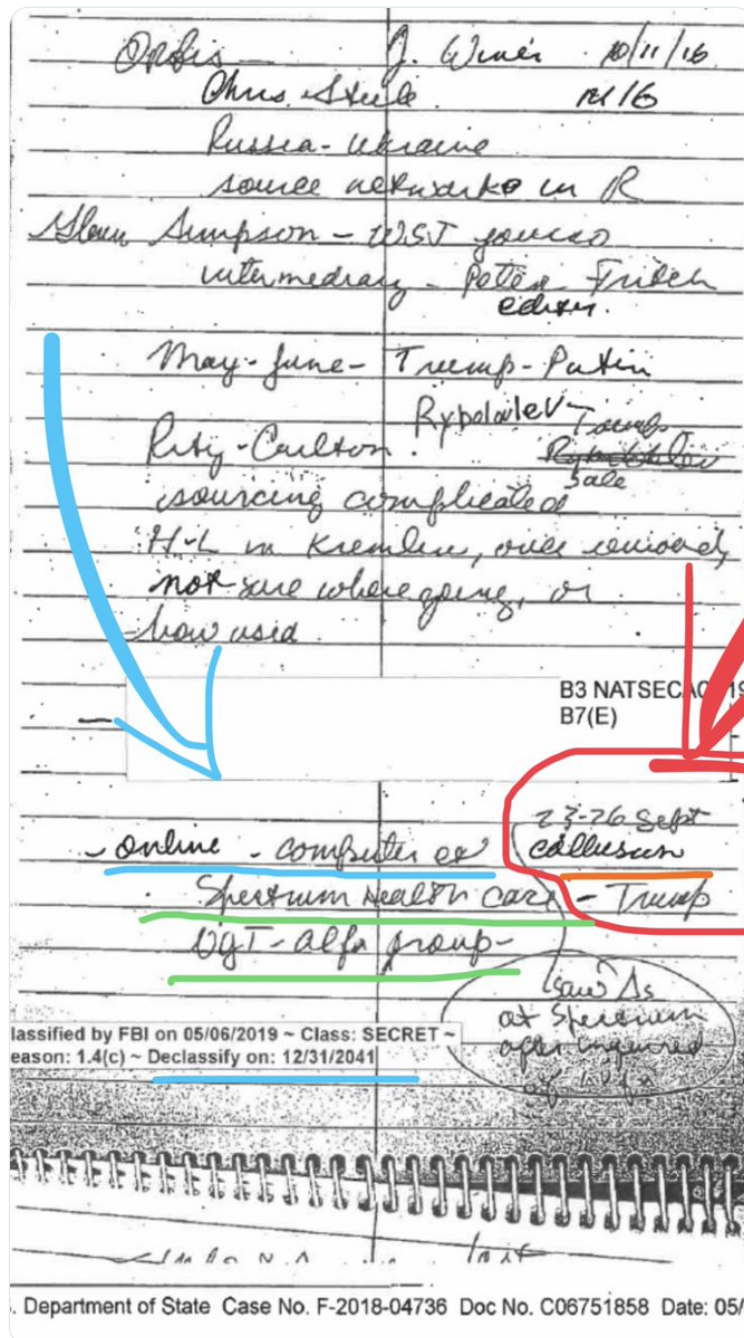 Orbis — J. Winer 10/11/16
Chris Steele M16
Russia - Ukraine
source networks in R
Glenn Simpson - WSJ
intermediary - Peter Fritsch
editor.
May - June - Trump - Putin
Rybolovlev -
Ritz - Carlton.
sale
sourcing complicated
H-L in Kremlin, once removed,
not sure where going, or
how used
B3 NATSECAC
B7(E)
23-26 Sept
- online - computer ex collusion
Spectrum Health Care - Trump
- alfa group -
saw Δs
at Spectrum
after inquired
of alfa
lassified by FBI on 05/06/2019 ~ Class: SECRET ~
eason: 1.4(c) ~ Declassify on: 12/31/2041
. Department of State Case No. F-2018-04736 Doc No. C06751858 Date: 05/